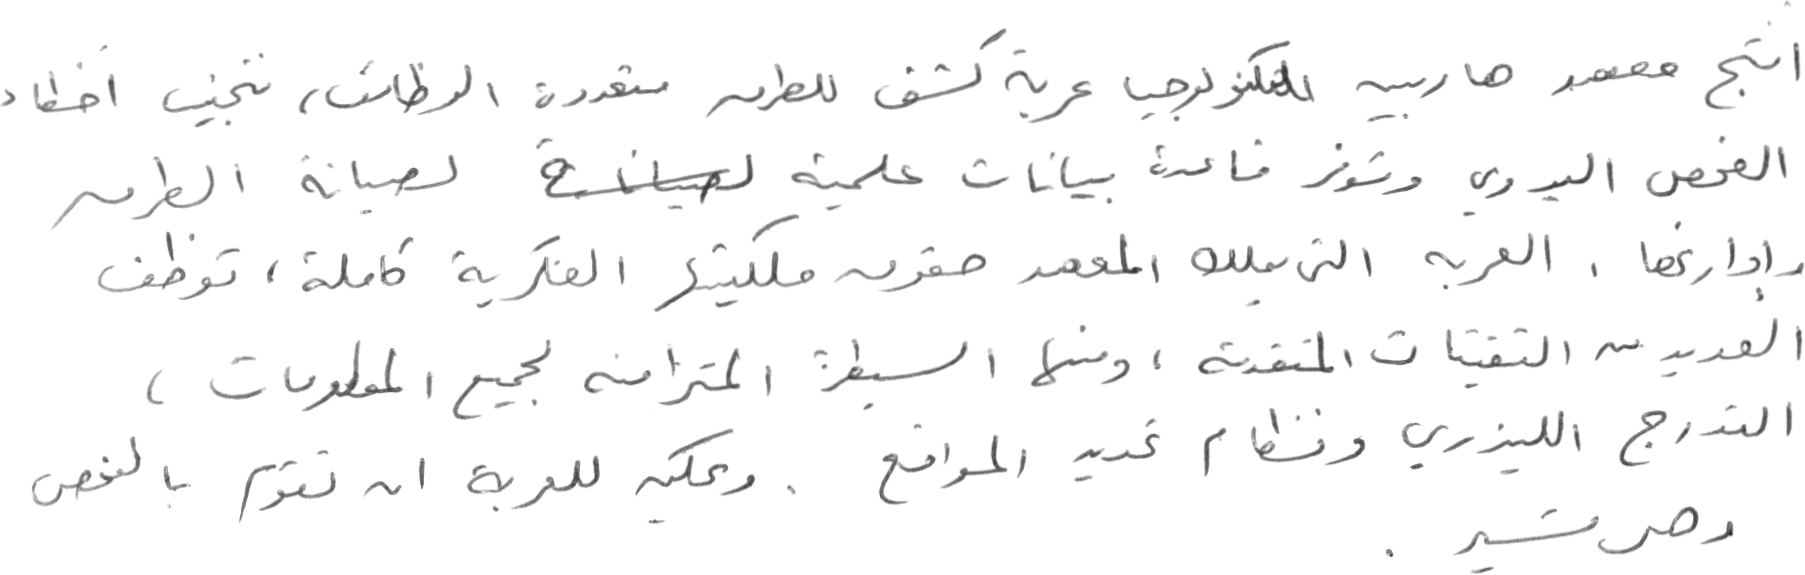 أنتج معهد هاربين للتكنولوجيا عربة كشف للطرق متعددة الوظائف، تتجنب أخطاء
الفحص اليدوي وتوفر قاعدة بيانات علمية لصيانة لصيانة الطرق
وإدارتها. العربة التي يملك المعهد حقوق ملكيتها الفكرية كاملة، توظف
العديد من التقنيات المتقدمة، ومنها السيطرة المتزامنة لجميع المعلومات،
التدرج الليزري ونظام تحديد المواقع. ويمكن للعربة ان تقوم بالفحص
وهي تسير.